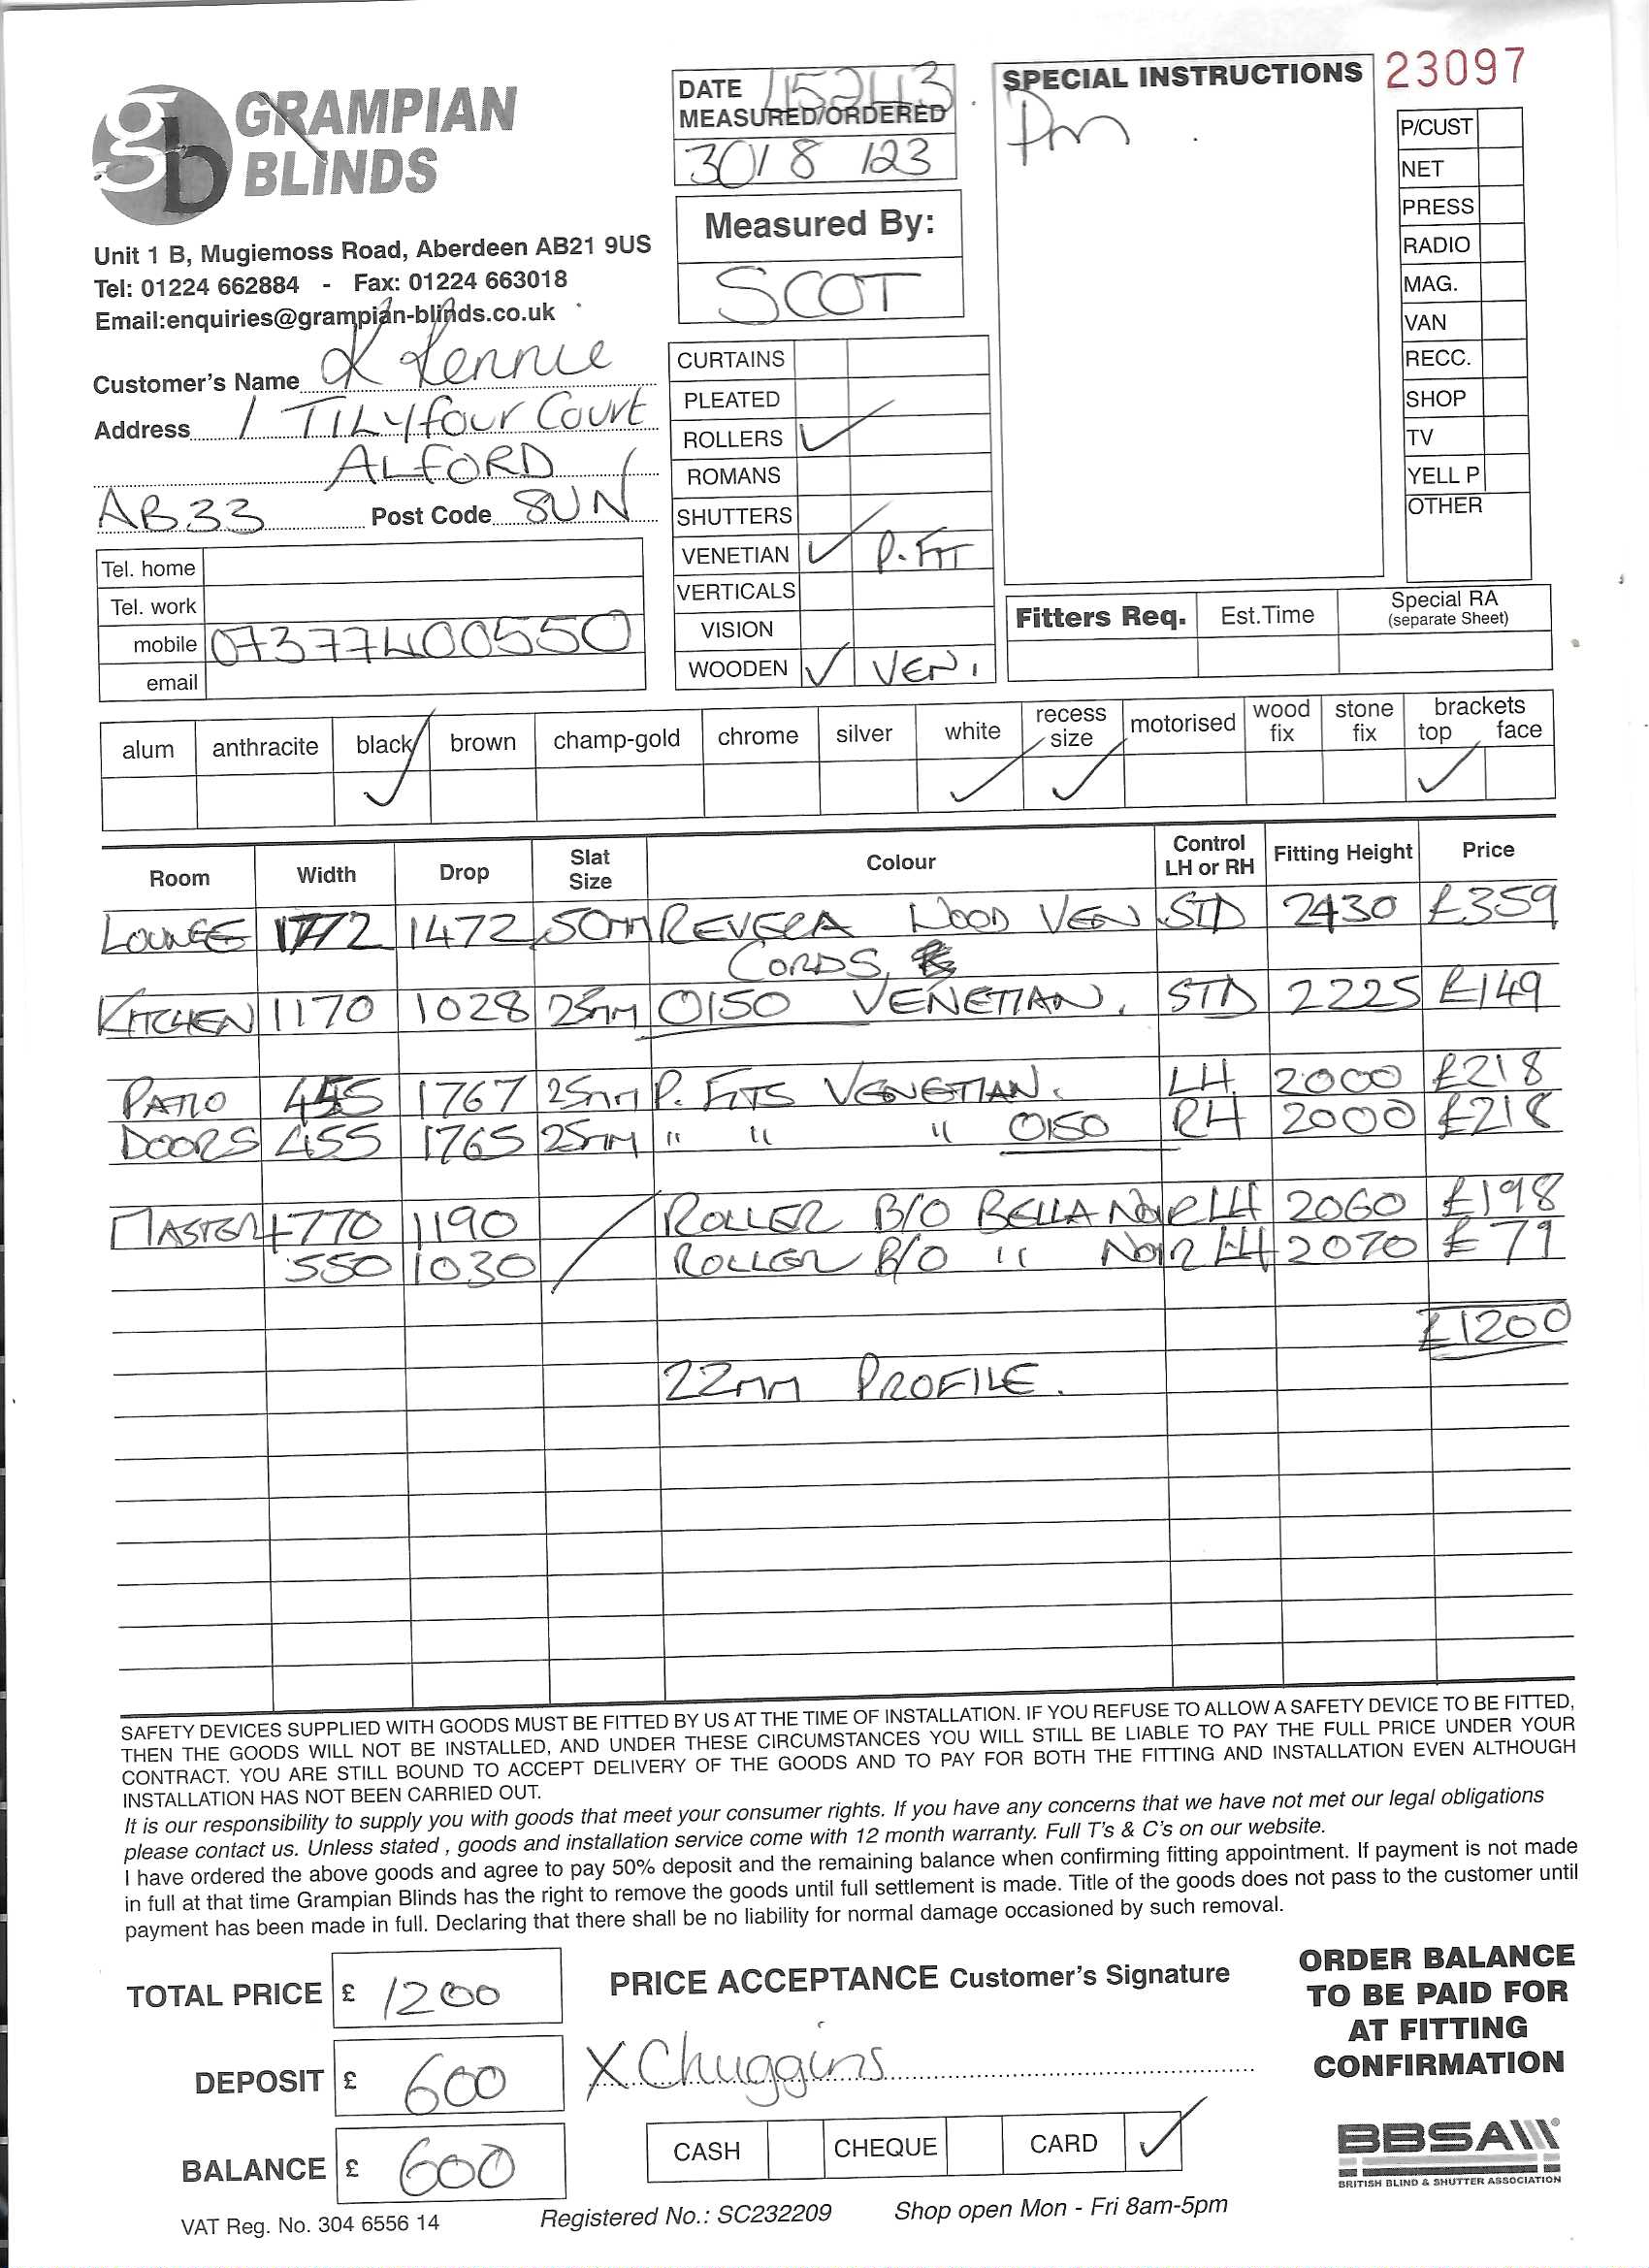 GRAMPIAN
BLINDS
Unit 1 B, Mugiemoss Road, Aberdeen AB21 9US
Tel: 01224 662884 - Fax: 01224 663018
Email:enquiries@grampian-blinds.co.uk
Customer's Name K Rennie
Address 1 TILYfour Court
ALFORD
AB33 Post Code 8UN
Tel. home
Tel. work
mobile 07377400550
email
DATE 115243
MEASURED/ORDERED
30/8/23
Measured By:
SCOT
CURTAINS
PLEATED
ROLLERS ✓
ROMANS
SHUTTERS
VENETIAN ✓ P. FIT
VERTICALS
VISION
WOODEN ✓ VEN.
SPECIAL INSTRUCTIONS
Pm
23097
P/CUST
NET
PRESS
RADIO
MAG.
VAN
RECC.
SHOP
TV
YELL P
OTHER
Fitters Req. Est.Time Special RA (separate Sheet)
alum anthracite black brown champ-gold chrome silver white recess size motorised wood fix stone fix brackets top face
✓ ✓ ✓ ✓
Room Width Drop Slat Size Colour Control LH or RH Fitting Height Price
LOUNGE 1772 1472 50mm REVERA WOOD VEN STD 2430 £359
CORDS,
KITCHEN 1170 1028 25mm 0150 VENETIAN. STD 2225 £149
PATIO 455 1767 25mm P. FITS VENETIAN. LH 2000 £218
DOORS 455 1765 25mm " " " 0150 RH 2000 £218
MASTER 1770 1190 ROLLER B/O BELLA NOIR LH 2060 £198
550 1030 ROLLER B/O " NOIR LH 2070 £71
£1200
22mm PROFILE.
SAFETY DEVICES SUPPLIED WITH GOODS MUST BE FITTED BY US AT THE TIME OF INSTALLATION. IF YOU REFUSE TO ALLOW A SAFETY DEVICE TO BE FITTED,
THEN THE GOODS WILL NOT BE INSTALLED, AND UNDER THESE CIRCUMSTANCES YOU WILL STILL BE LIABLE TO PAY THE FULL PRICE UNDER YOUR
CONTRACT. YOU ARE STILL BOUND TO ACCEPT DELIVERY OF THE GOODS AND TO PAY FOR BOTH THE FITTING AND INSTALLATION EVEN ALTHOUGH
INSTALLATION HAS NOT BEEN CARRIED OUT.
It is our responsibility to supply you with goods that meet your consumer rights. If you have any concerns that we have not met our legal obligations
please contact us. Unless stated , goods and installation service come with 12 month warranty. Full T's & C's on our website.
I have ordered the above goods and agree to pay 50% deposit and the remaining balance when confirming fitting appointment. If payment is not made
in full at that time Grampian Blinds has the right to remove the goods until full settlement is made. Title of the goods does not pass to the customer until
payment has been made in full. Declaring that there shall be no liability for normal damage occasioned by such removal.
TOTAL PRICE £ 1200
DEPOSIT £ 600
BALANCE £ 600
PRICE ACCEPTANCE Customer's Signature
X Chuggins
CASH CHEQUE CARD ✓
ORDER BALANCE
TO BE PAID FOR
AT FITTING
CONFIRMATION
BBSA
BRITISH BLIND & SHUTTER ASSOCIATION
VAT Reg. No. 304 6556 14 Registered No.: SC232209 Shop open Mon - Fri 8am-5pm